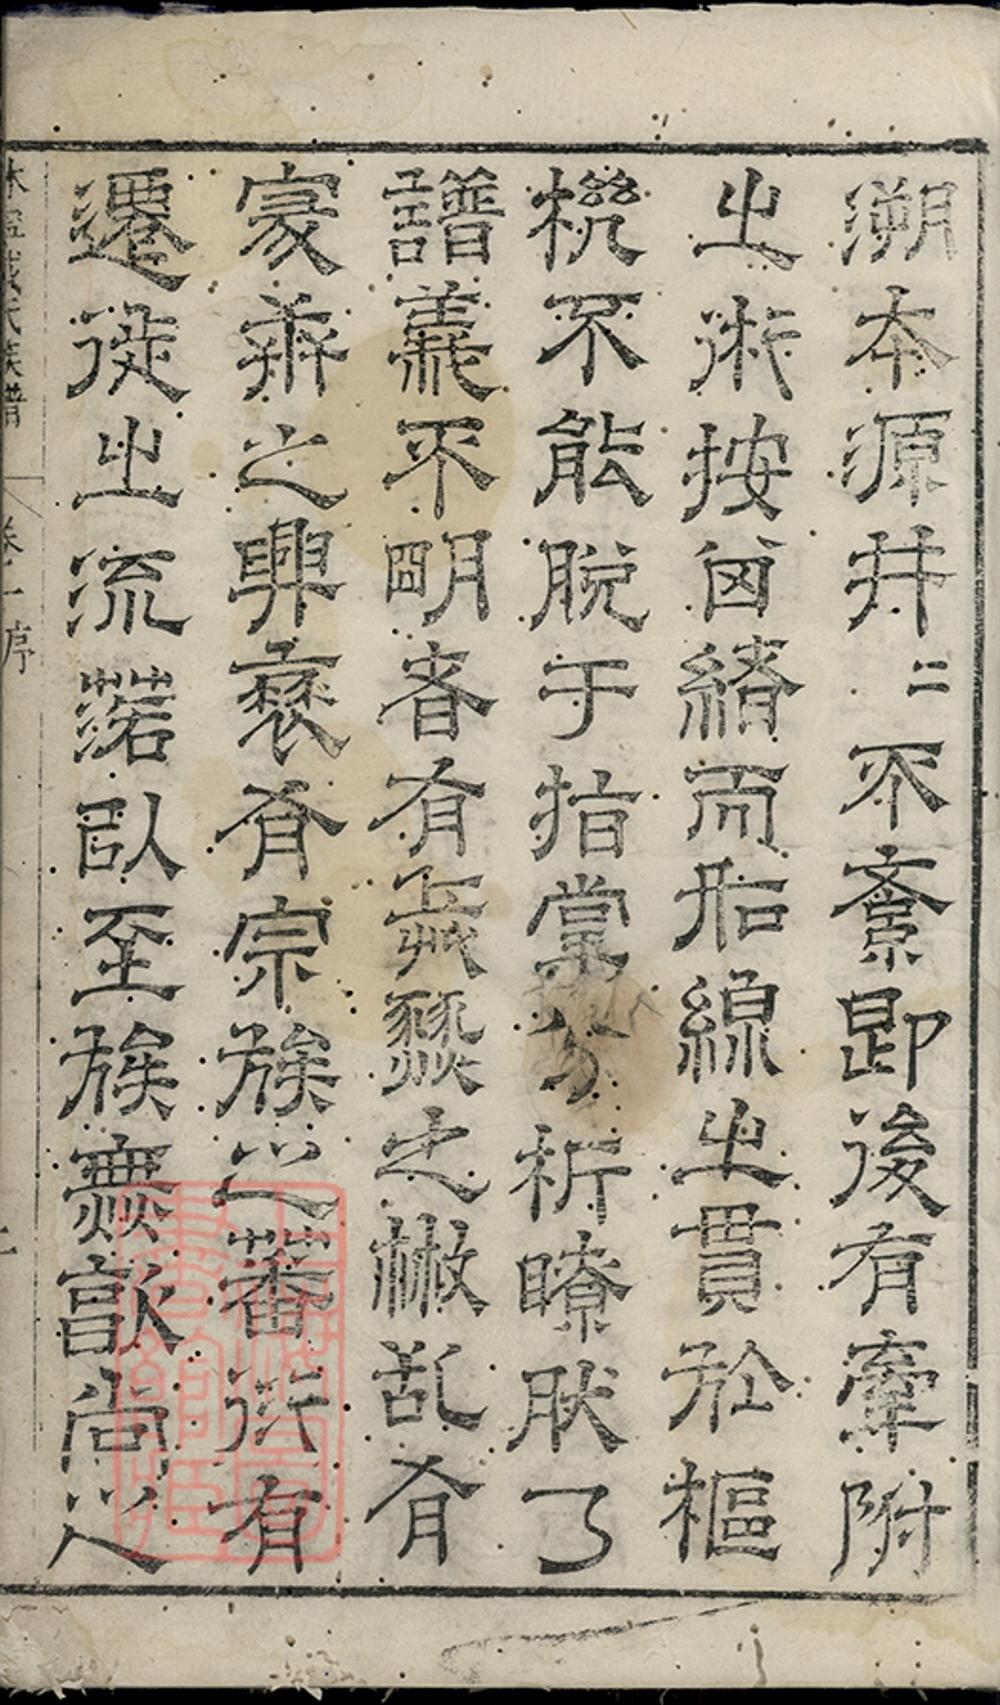 溯本源井二不紊卽後有牽附
之術按因緒而線之貫於樞
機不能脫于指掌分析瞭肰了
譜義不明者有之乱有
家乘之興衰有宗族之蕃衍有
遷徙之流落以至族無歆尚之
休寧戴氏族譜 卷一 序 二